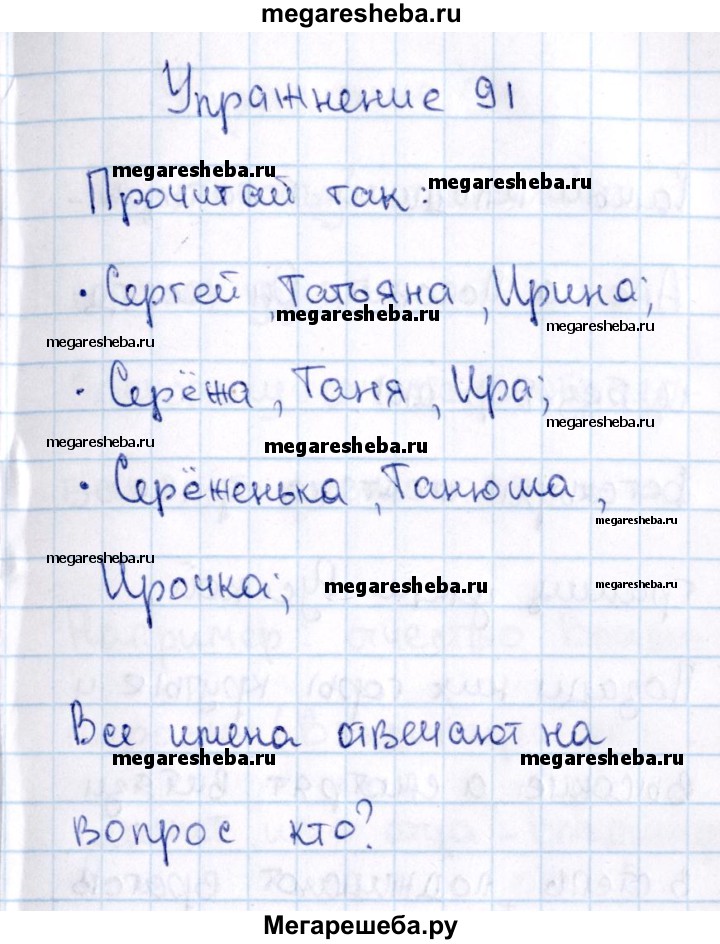 megaresheba.ru
Упражнение 91
megaresheba.ru
megaresheba.ru
Прочитай так:
· Сергей, Татьяна, Ирина;
megaresheba.ru
megaresheba.ru
megaresheba.ru
· Серёжа, Таня, Ира;
megaresheba.ru
megaresheba.ru
megaresheba.ru
· Серёженька, Танюша,
megaresheba.ru
megaresheba.ru
Ирочка;
megaresheba.ru
megaresheba.ru
Все имена отвечают на
megaresheba.ru
megaresheba.ru
вопрос кто?
Мегарешеба.ру